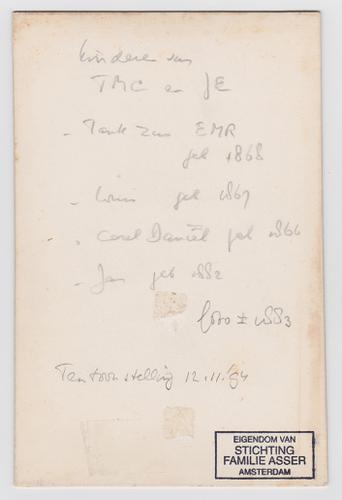 kinderen van
TMC en JE
- Tante Zus EMR
geb 1868
- Louis geb 1867
- Carel Daniël geb 1866
- Jan geb 1882
foto ± 1883
Tentoonstelling 12.11.'54
EIGENDOM VAN
STICHTING
FAMILIE ASSER
AMSTERDAM